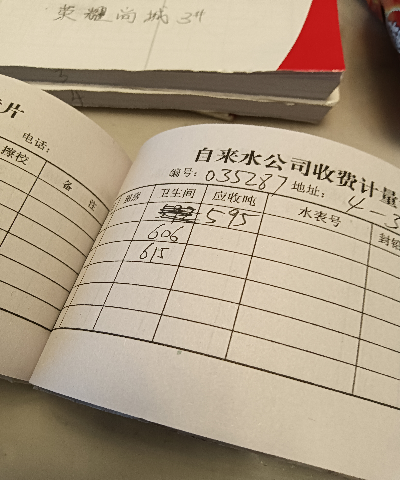 荣耀尚城 3#
片
电话:
擦校 备注
自来水公司收费计量
编号: 035287 地址: 4-3
厨房 卫生间 应收吨 水表号 封铅
595
606
615